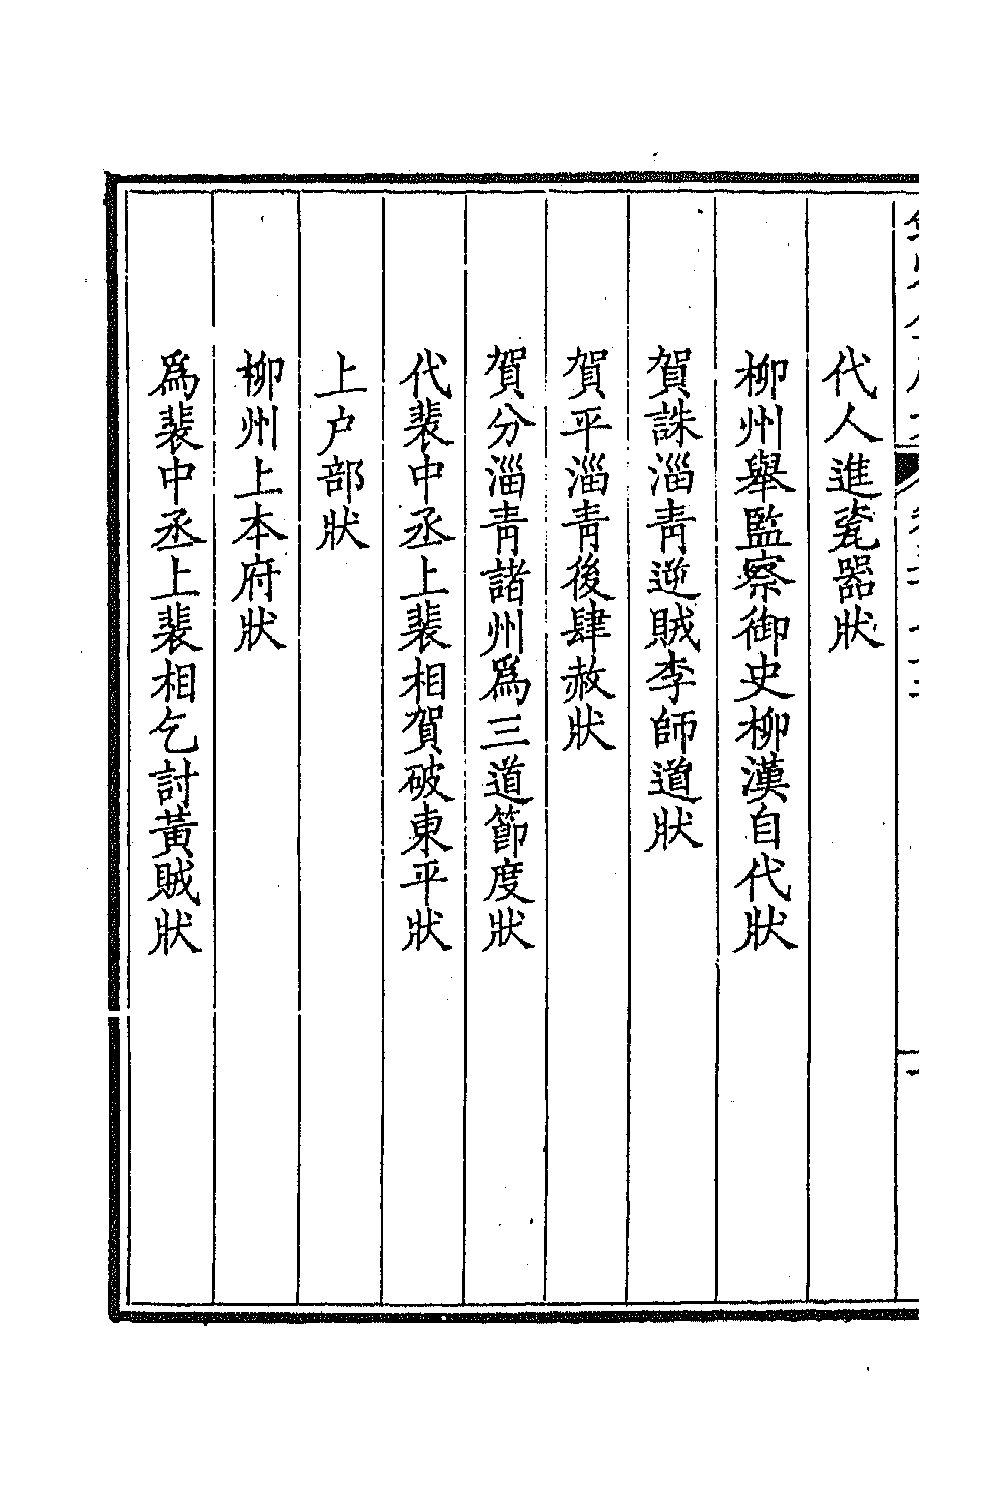 代人進瓷器狀
柳州舉監察御史柳漢自代狀
賀誅淄青逆賊李師道狀
賀平淄青後肆赦狀
賀分淄青諸州爲三道節度狀
代裴中丞上裴相賀破東平狀
上户部狀
柳州上本府狀
爲裴中丞上裴相乞討黃賊狀